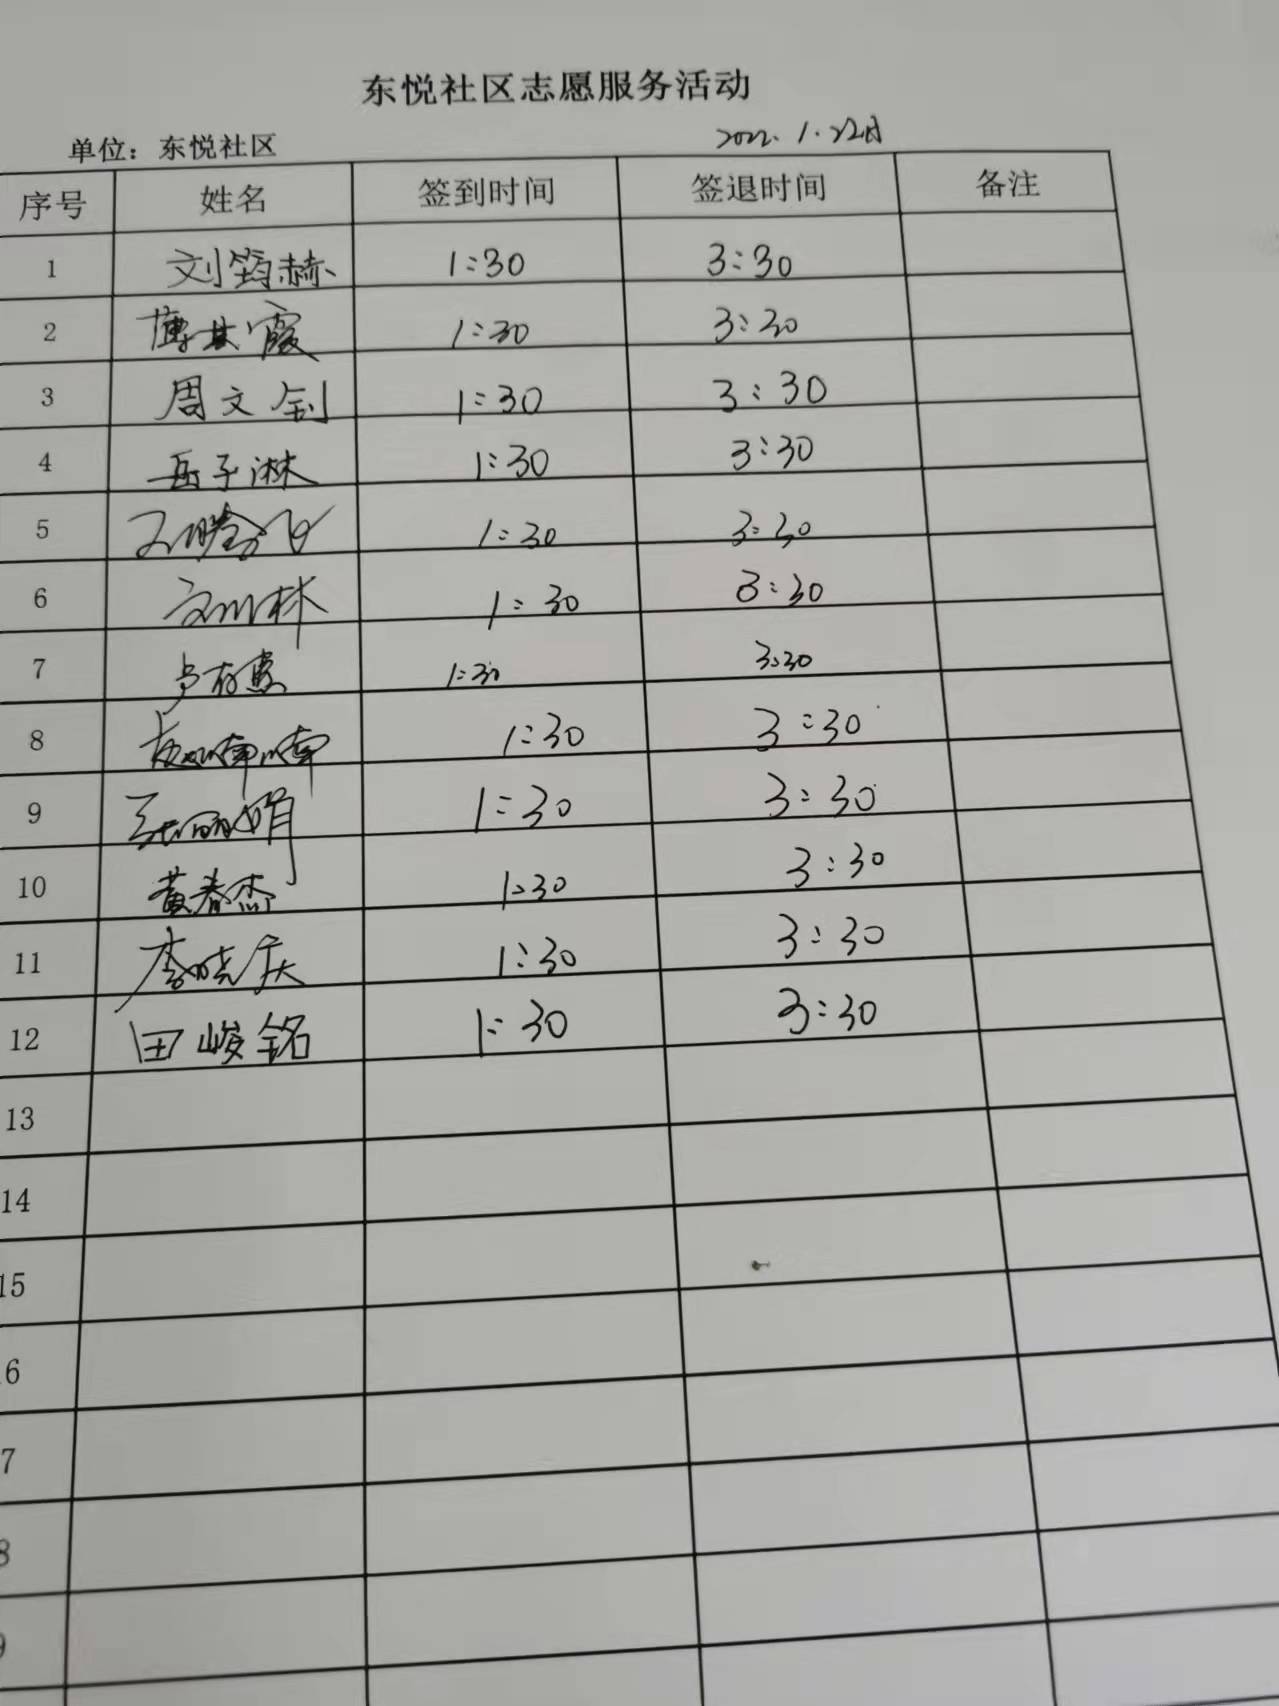 东悦社区志愿服务活动
单位：东悦社区 2022.1.22日
序号 姓名 签到时间 签退时间 备注
1 刘筠赫 1:30 3:30
2 1:30 3:30
3 周文钊 1:30 3:30
4 岳子淋 1:30 3:30
5 1:30 3:30
6 1:30 3:30
7 1:30 3:30
8 1:30 3:30
9 张丽娟 1:30 3:30
10 黄春杰 1:30 3:30
11 李晓庆 1:30 3:30
12 田峻铭 1:30 3:30
13
14
15
6
7
8
9